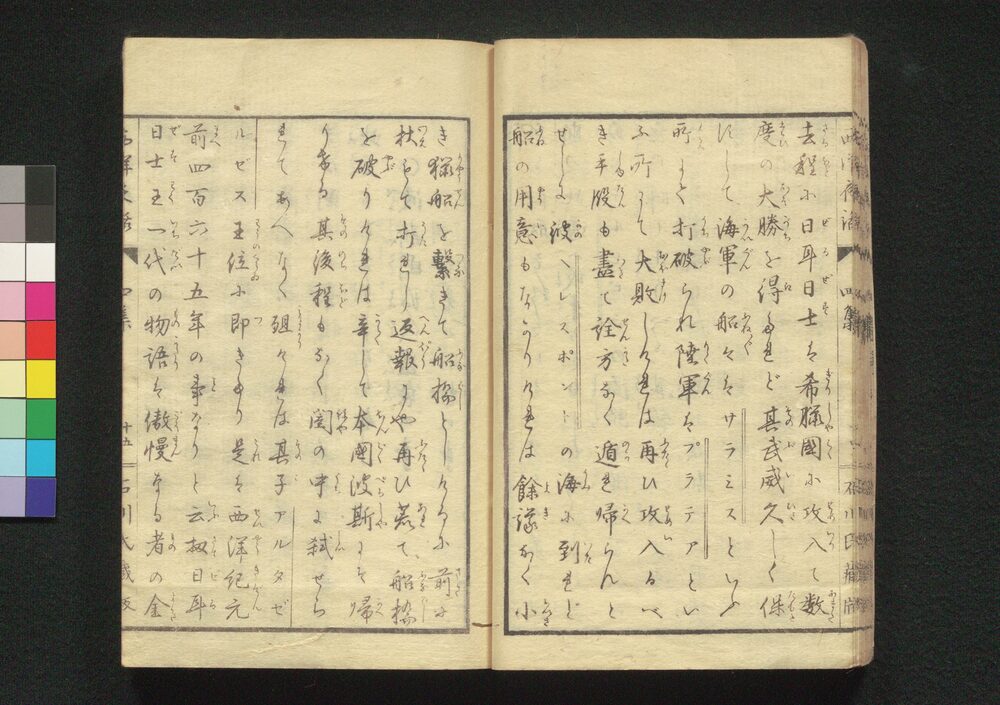 去程に日耳日士は希臘國に攻入て数
度の大勝を得たれど其武威久しく保
たずして海軍の船々はサラミスといふ
所にて打破られ陸軍はプラテアとい
ふ所にて大敗しければ再ひ攻入るべ
き手段も盡て詮方なく遁れ帰らんと
せしに彼ヘレスポントの海に到れど
船の用意もなかりければ餘議なく小
き猟船を繋きて船橋としけるに前に
杖もて打れし返報にや再ひ荒て船橋
を破りければ辛して本國波斯にそ帰
りける其後程もなく閨の中に弑せら
れてあへなく殂ければ其子アルタゼ
ルゼス王位に即きたり是は西洋紀元
前四百六十五年の事なりと云扨日耳
日士王一代の物語は傲慢なる者の金
西洋夜話 四集 十五 石川氏蔵版